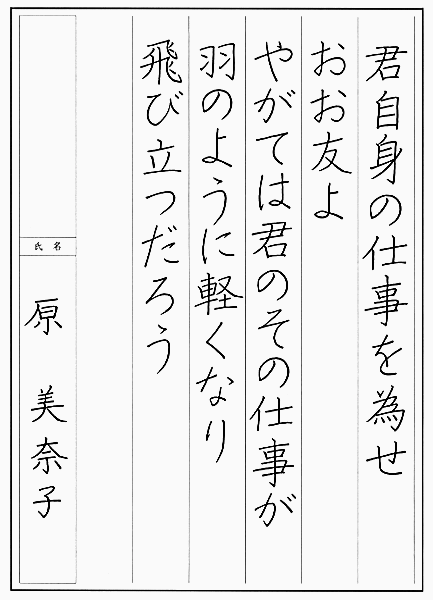 君自身の仕事を為せ
おお友よ
やがては君のその仕事が
羽のように軽くなり
飛び立つだろう
氏名
原 美奈子